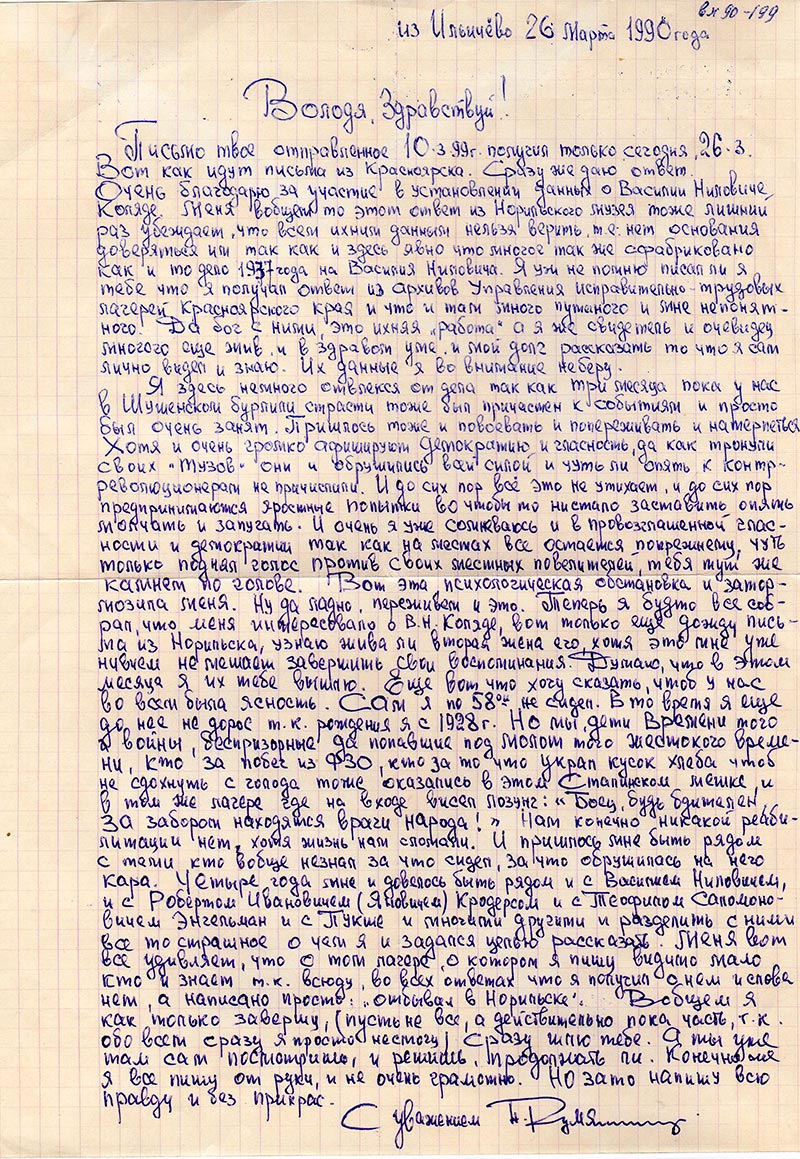 вх 90-199
из Ильичёво 26 Марта 1990 года
Володя, Здравствуй!
Письмо твое отправленное 10.3.99г. получил только сегодня, 26.3.
Вот как идут письма из Красноярска. Сразу же даю ответ.
Очень благодарю за участие в установлении данных о Василии Ниловиче
Коляде. Меня вобщем то этот ответ из Норильского музея тоже лишний
раз убеждает, что всем ихним данным нельзя верить, т.е. нет основания
доверяться им так как и здесь явно что многое так же сфабриковано
как и то дело 1937 года на Василия Ниловича. Я уж не помню писал ли я
тебе что я получал ответ из архивов Управления исправительно-трудовых
лагерей Красноярского края и что и там много путаного и мне непонят-
ного. Да бог с ними, это ихняя „работа" а я же свидетель и очевидец
многого еще жив, и в здравом уме, и мой долг рассказать то что я сам
лично видел и знаю. Их данные я во внимание не беру.
Я здесь немного отвлекся от дела так как три месяца пока у нас
в Шушенском бурлили страсти тоже был причастен к событиям и просто
был очень занят. Пришлось тоже и повоевать и попереживать и натерпеться
Хотя и очень громко афишируют демократию и гласность, да как тронули
своих "тузов" они и обрушились всей силой и чуть ли опять к контр-
революционерам не причислили. И до сих пор всё это не утихает, и до сих пор
предпринимаются яростные попытки во чтобы то нистало заставить опять
молчать и запугать. И очень я уже сомневаюсь и в провозглашенной глас-
ности и демократии так как на местах все остается попрежнему, чуть
только поднял голос против своих местных повелителей, тебя тут же
камнем по голове. Вот эта психологическая обстановка и затор-
мозила меня. Ну да ладно, переживем и это. Теперь я будто все соб-
рал, что меня интересовало о В.Н. Коляде, вот только еще дождусь пись-
ма из Норильска, узнаю жива ли вторая жена его, хотя это мне уже
нивчем не мешает завершить свои воспоминания. Думаю, что в этом
месяце я их тебе вышлю. Еще вот что хочу сказать, чтоб у нас
во всем была ясность. Сам я по 58ой не сидел. В то время я еще
до нее не дорос т.к. рождения я с 1928г. Но мы, дети времени того
и войны, беспризорные да попавшие под молот того жестокого време-
ни, кто за побег из ФЗО, кто за то что украл кусок хлеба чтоб
не сдохнуть с голода тоже оказались в этом Сталинском мешке, и
в том же лагере где на входе висел лозунг: „Боец, будь бдителен,
За забором находятся враги народа!" Нам конечно никакой реаби-
литации нет, хотя жизнь нам сломали. И пришлось мне быть рядом
с теми кто вобще незнал за что сидел, за что обрушилась на него
кара. Четыре года мне и довелось быть рядом и с Василием Ниловичем,
и с Робертом Ивановичем (Яновичем) Кродерсом и с Теофилом Саломоно-
вичем Энгельман и с Пукше и многими другими и разделить с ними
все то страшное о чем я и задался целью рассказать. Меня вот
все удивляет, что о том лагере, о котором я пишу видимо мало
кто и знает т.к. всюду, во всех ответах что я получил о нем и слова
нет, а написано просто: „отбывал в Норильске". Вобщем я
как только завершу, (пусть не все, а действительно пока часть, т.к.
обо всем сразу я просто несмогу) Сразу шлю тебе. А ты уже
там сам посмотришь, и решишь, продолжать ли. Конечно же
я все пишу от руки, и не очень грамотно. Но зато напишу всю
правду и без прикрас.
С уважением